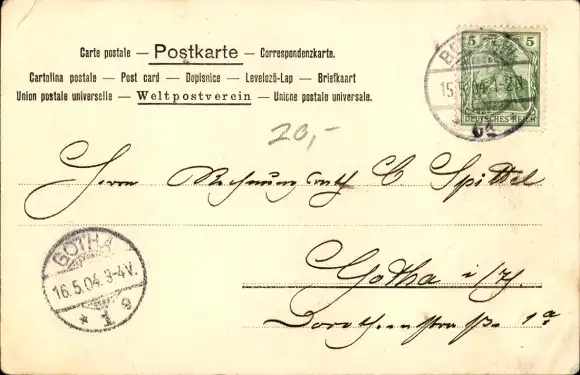 Carte postale — Postkarte — Correspondenzkarte.
Cartolina postale — Post card — Dopisnice — Levelező-Lap — Briefkaart
Union postale universelle — Weltpostverein — Unione postale universale.
5 5
15.5.04.1-2
DEUTSCHES REICH
20,-
Herrn Rechnungsrath C Spittel
Gotha i/Th.
Dorotheenstraße 1a
GOTHA
16.5.04.3-4V.
* 1 g